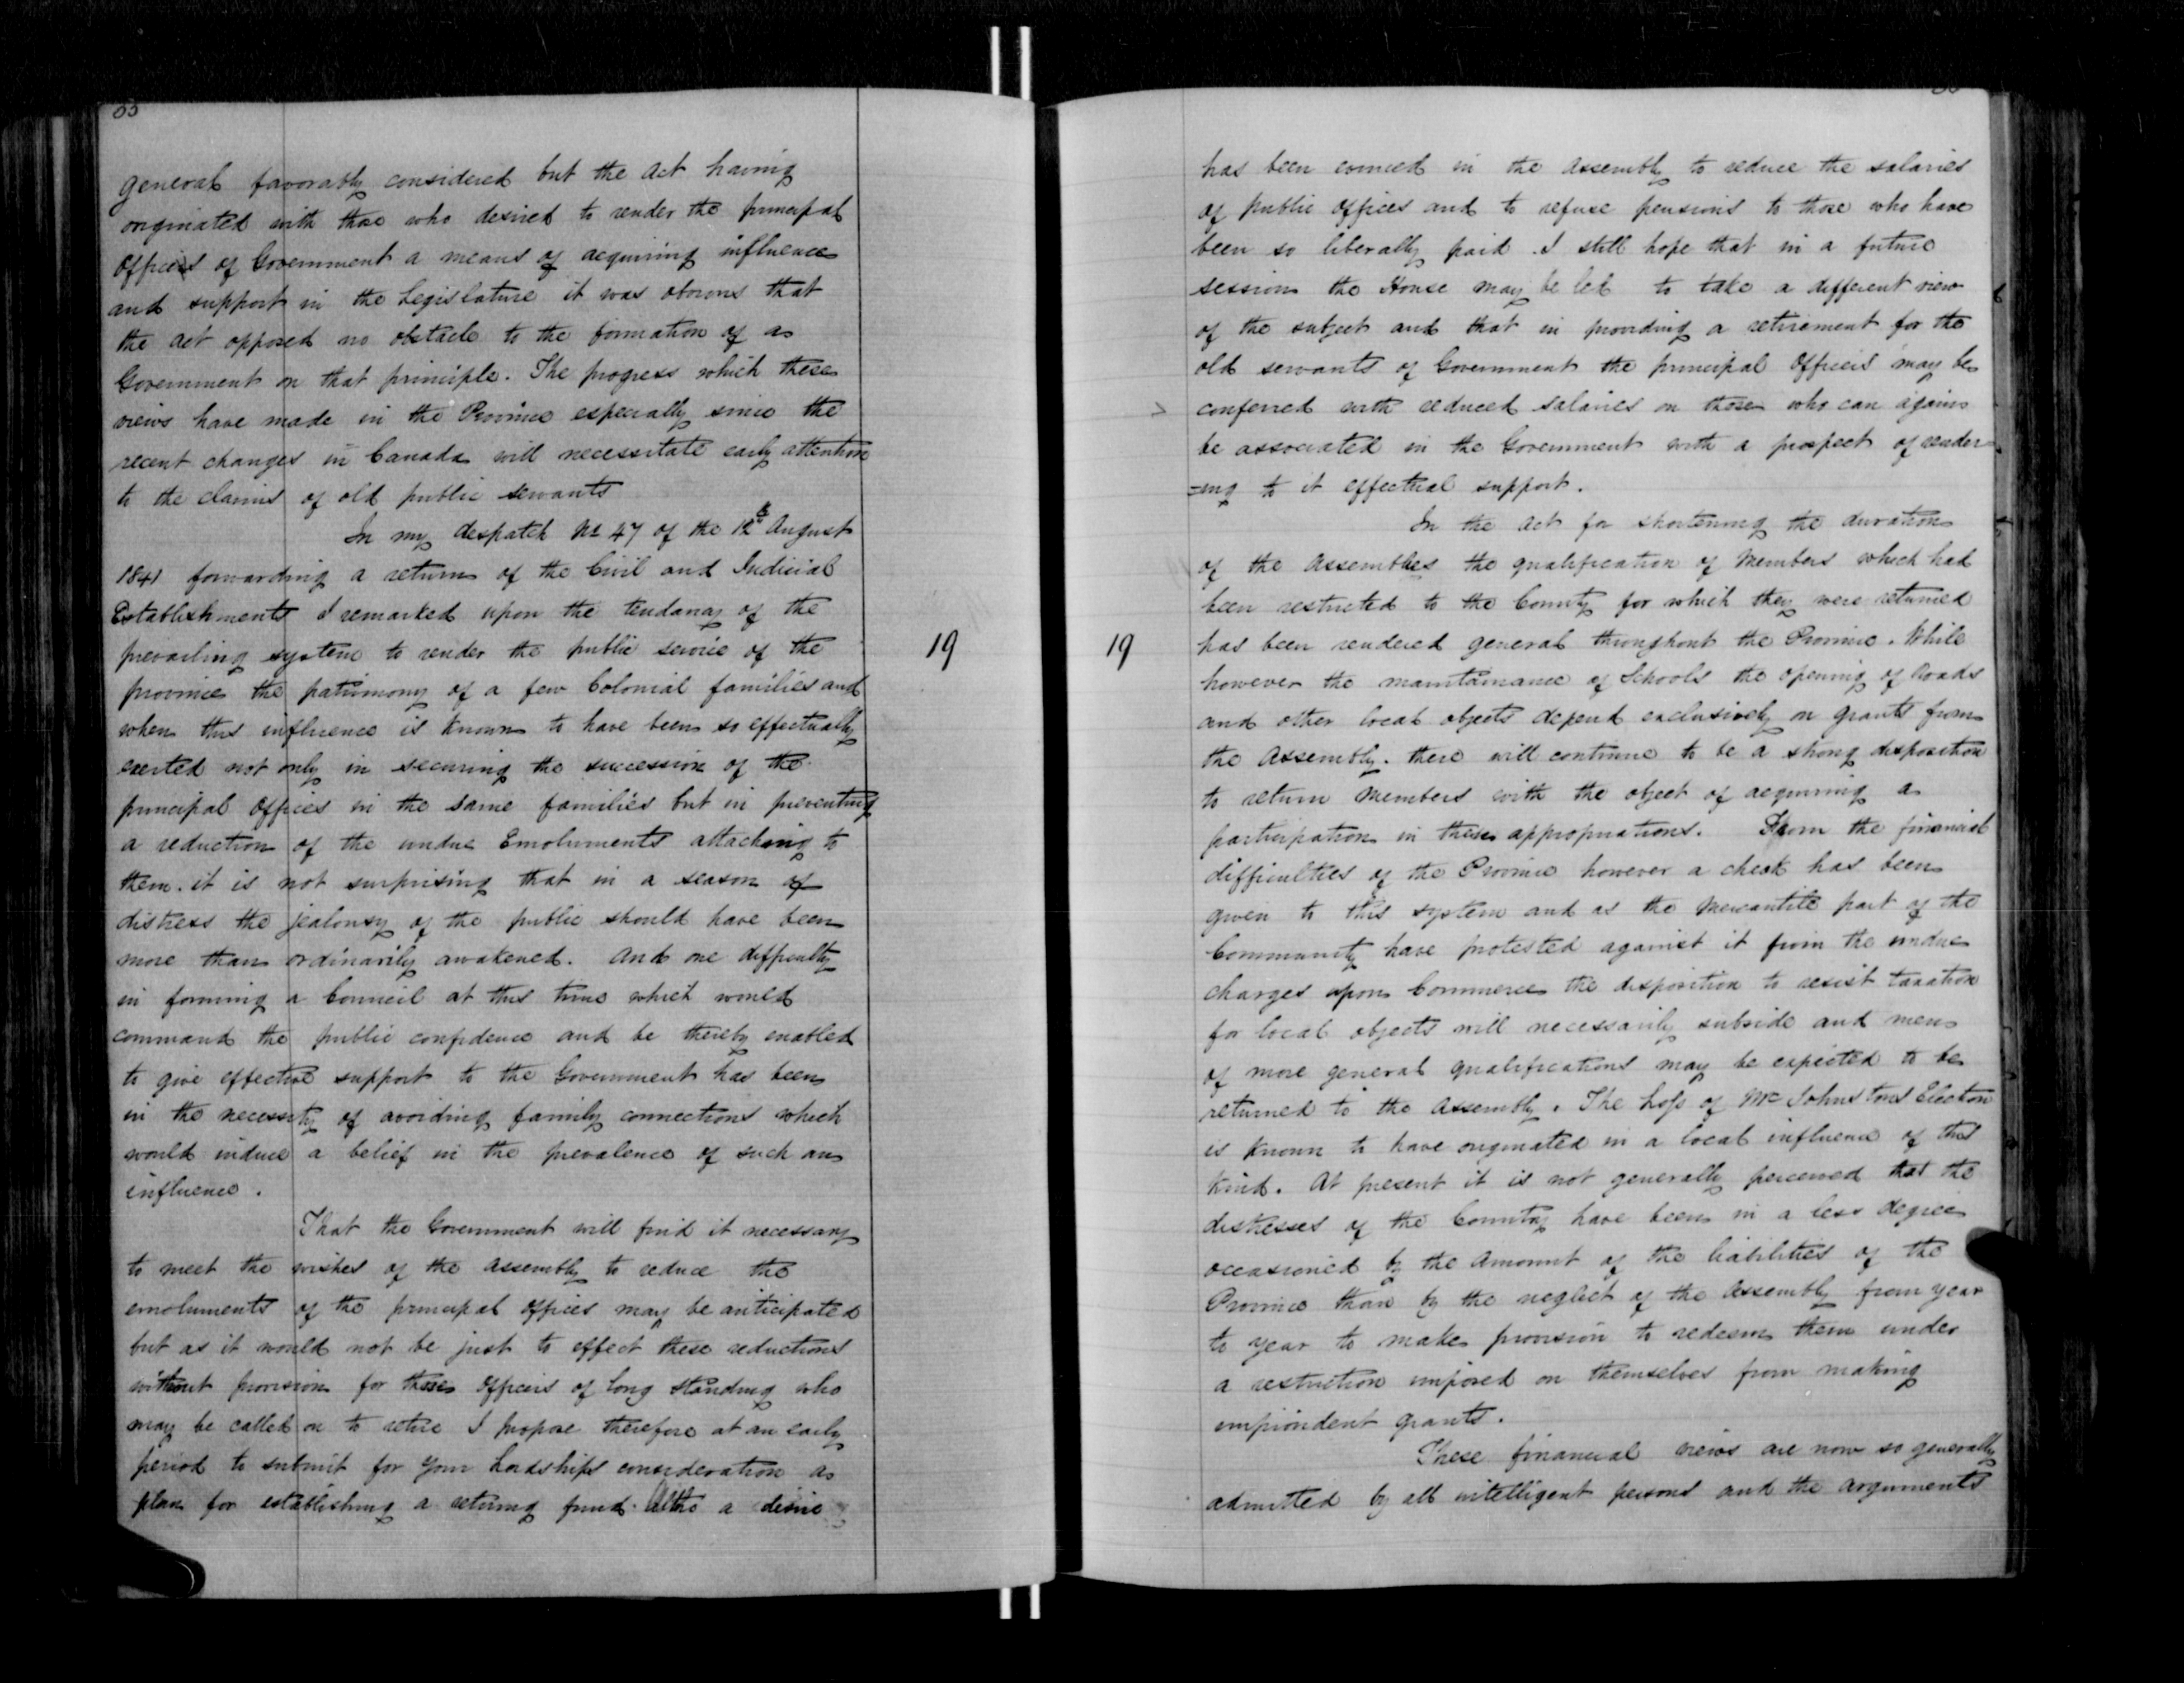 general favorably considered but the Act having
originated with those who desired to render the principal
Offices of Government a means of acquiring influence
and support in the Legislature it was obvious that
the Act opposed no obstacle to the formation of a
Government on that principle. The progress which these
views have made in the Province especially since the
recent changes in Canada will necessitate early attention
to the claims of old public servants
In my despatch No 47 of the 12th August
1841 forwarding a return of the Civil and Judicial
Establishments I remarked upon the tendancy of the
prevailing system to render the public service of the
province the patrimony of a few Colonial families and
when this influence is known to have been so effectually
exerted not only in securing the succession of the
principal Offices in the same families but in preventing
a reduction of the undue Emoluments attaching to
them. it is not surprising that in a season of
distress the jealousy of the public should have been
more than ordinarily awakened. And one difficulty
in forming a Council at this time which would
command the public confidence and be thereby enabled
to give effective support to the Government has been
in the necessity of avoiding family connections which
would induce a belief in the prevalence of such an
influence.
That the Government will find it necessary
to meet the wishes of the Assembly to reduce the
emoluments of the principal Offices may be anticipated
but as it would not be just to effect these reductions
without provision for those Officers of long standing who
may be called on to retire I propose therefore at an early
period to submit for Your Lordships consideration a
plan for establishing a retiring fund. Altho a desire
19
19
has been evinced in the Assembly to reduce the salaries
of public Offices and to refuse pensions to those who have
been so liberally paid. I still hope that in a future
session the House may be led to take a different view
of the subject and that in providing a retirement for the
old servants of Government the principal Offices may be
conferred with reduced salaries on those who can again
be associated in the Government with a prospect of render
=ing to it effectual support.
In the Act for shortening the duration
of the Assemblies the qualification of Members which had
been restricted to the County for which they were returned
has been rendered general throughout the Province. While
however the maintainance of Schools the opening of Roads
and other local objects depend exclusively on grants from
the Assembly. there will continue to be a strong disposition
to return Members with the object of acquiring a
participation in these appropriations. From the financial
difficulties of the Province however a check has been
given to this system and as the Mercantile part of the
Community have protested against it from the undue
charges upon Commerce the disposition to resist taxation
for local objects will necessarily subside and men
of more general qualifications may be expected to be
returned to the Assembly. The loss of Mr Johnstons Election
is known to have originated in a local influence of this
kind. At present it is not generally perceived that the
distresses of the Country have been in a less degree
occasioned by the Amount of the liabilities of the
Province than by the neglect of the Assembly from year
to year to make provision to redeem them under
a restriction imposed on themselves from making
improvident grants.
These financial views are now so generally
admitted by all intelligent persons and the arguments